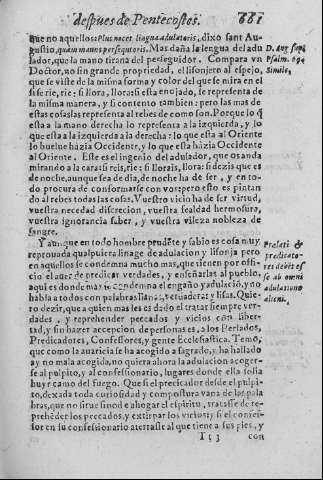 despues de Pentecostes. 661
que no aquellos: Plus nocet lingua adulatoris, dixo sant Au-
gustin, quam manus persequutoris. Mas daña la lengua del adu
lador, que la mano tirana del perseguidor. Compara vn
Doctor, no sin grande propriedad, el lisonjero al espejo,
que se viste de la misma forma y color del que se mira en el
si se rie, rie: si llora, llora: si esta enojado, se representa de
la misma manera, y si contento tambien: pero las mas de
estas cosas las representa al rebes de como son. Porque lo q̃
esta a la mano derecha lo representa a la izquierda, y lo
que esta a la izquierda a la derecha: lo que esta al Oriente
lo buelue házia Occidente, y lo que esta házia Occidente
al Oriente. Este es el ingenio del adulador, que os anda
mirando a la cara: si reis, rie: si llorais, llora: si dezis que es
de noche, aunque sea de dia, de noche ha de ser, y en to-
do procura de conformarse con vos: pero esto es pintan
do al rebes todas las cosas. Vuestro vicio ha de ser virtud,
vuestra necedad discrecion, vuestra fealdad hermosura,
vuestra ignorancia saber, y vuestra vileza nobleza de
sangre.
Y aunque en todo hombre prudẽte y sabio es cosa muy
reprouada qualquiera linage de adulacion y lisonja pero
en aquellos se condemna mucho mas, que tienen por offi-
cio el auer de predicar verdades, y enseñarlas al pueblo,
aqui es donde mas se condemna el engaño y adulació, y no
habla a todos con palabras llanas, verdaderas y lisas. Quie-
ro dezir, que a quien mas les es dado el tratar siempre ver-
dades, y reprehender peccados y vicios con liber-
tad, y sin hazer accepcion de personas es, a los Perlados,
Predicadores, Confessores, y gente Ecclesiastica. Temo,
que como la auaricia se ha acogido a sagrado, y ha hallado
ay no mala acogida, no quiera ahora la adulacion acoger-
se al pulpito, y al confessionario, lugares donde ella solia
huyr camo del fuego. Que si el predicador desde el pulpi-
to, dexada toda curiosidad y compostura vana de los pala
bras, que no sirue sino de ahogar el espiritu, tratasse de re-
prehẽder los peccados, y extirpar los vicios: y si el confes-
sor en su confessionario aterrasse al que tiene a sus pies, y
Tt 3 con
D. Aug. sup.
Psalm. 69.
Simile,
Prelati &
predicato-
res debẽt es
se ab omni
adulatione
alieni.